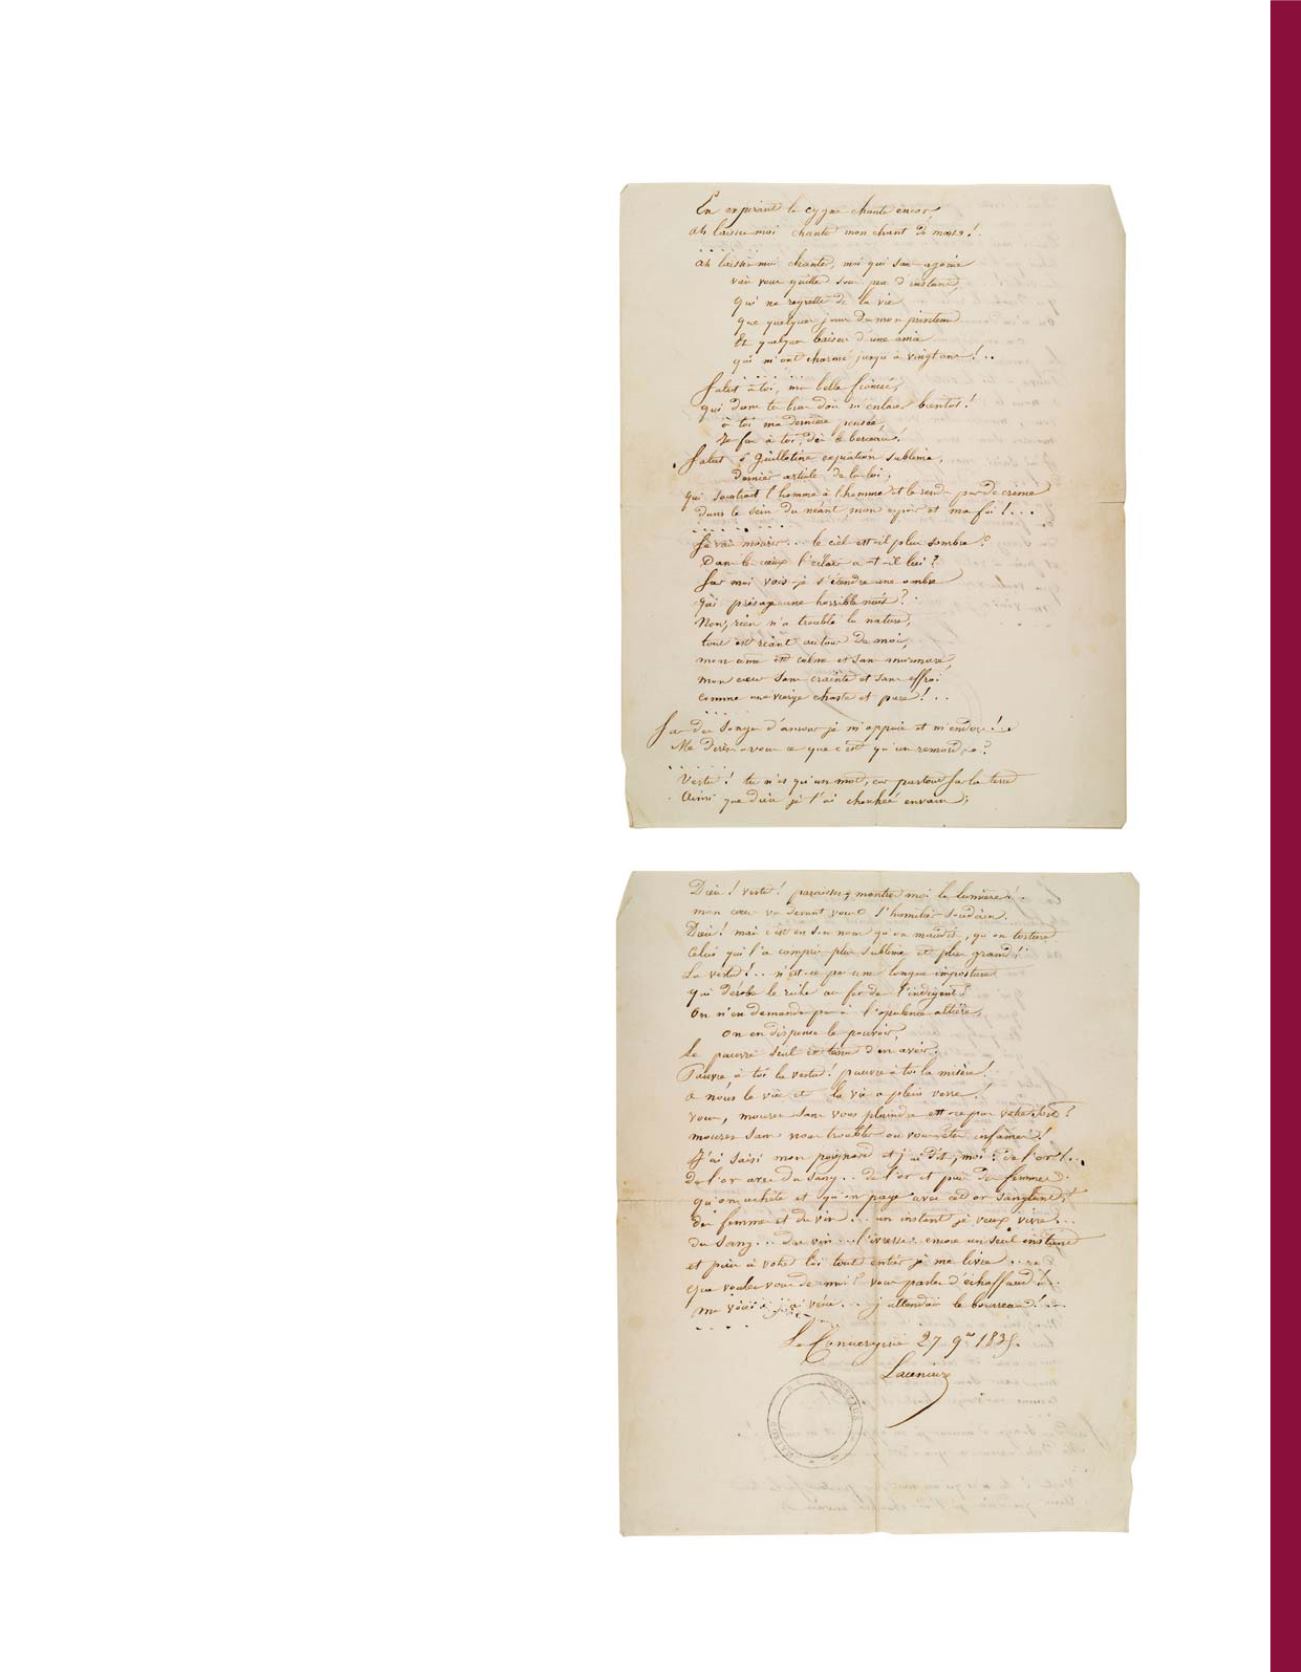 En expirant le cygne chante encor,
ah laissez moi chanter mon chant de mort!
ah laissez moi chanter, moi qui sans agonie
vais vous quitter dans peu d'instans,
qui ne regrette de la vie
que quelques jours de mon printems
Et quelques baisers d'une amie
qui m'ont charmé jusqu'à vingt ans!..
Salut à toi, ma belle fiancée,
qui dans tes bras dois m'enlacer bientot!
à toi ma dernière pensée,
Je fus à toi, dès le berceau!
Salut ô Guillotine expiation sublime,
Dernier article de la loi,
qui soustrait l'homme à l'homme et le rend pur de crime
dans le sein du néant, mon espoir et ma foi!...
Je vais mourir... le ciel est-il plus sombre?
Dans les cieux l'éclair a-t-il lui?
Sur moi vois-je s'étendre une ombre
qui présage une horrible nuit?
Non, rien n'a troublé la nature,
tout est riant autour de moi,
mon âme est calme et sans murmure,
mon cœur sans crainte et sans effroi
comme une vierge chaste et pure!..
Sur des songes d'amour je m'appuie et m'endors!
Me direz-vous ce que c'est qu'un remords?
Vertu! tu n'es qu'un mot, car partout sur la terre
Ainsi que dieu je t'ai cherchée envain;
Dieu! vertu! paraissez, montrez moi la lumière!..
mon cœur va devant vous s'humilier soudain.
Dieu! mais c'est en son nom qu'on maudit, qu'on torture
Celui qui l'a compris plus sublime et plus grand!
La vertu!.. n'est-ce pas une longue imposture
qui dérobe le riche au fer de l'indigent?
On n'en demande pas à l'opulence altière,
on en dispense le pouvoir,
Le pauvre seul est tenu d'en avoir.
Pauvre, à toi la vertu! pauvre à toi la misère!
à nous le vice et la vie a plein verre!
Vous, mourez sans vous plaindre est-ce pas votre sort?
mourez sans nous troubler ou vous êtes infames!
J'ai saisi mon poignard et j'ai dit, moi: de l'or!..
de l'or avec du sang.. de l'or et puis des femmes
qu'on achète et qu'on paye avec cet or sanglant,
des femmes et du vin... un instant je veux vivre...
du sang... du vin... l'ivresse.. encore un seul instant
et puis à votre loi tout entier je me livre...
que voulez vous de moi? vous parlez d'échaffaud!..
me voici... j'attendais le bourreau!...
La Conciergerie 27 9bre 1835.
Lacenaire